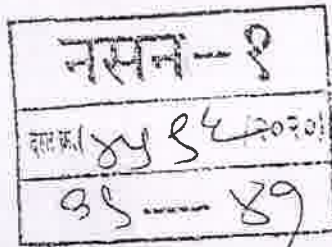 नसन-१
दस्त क्र.(४५९६/२०२०)
१९----४१